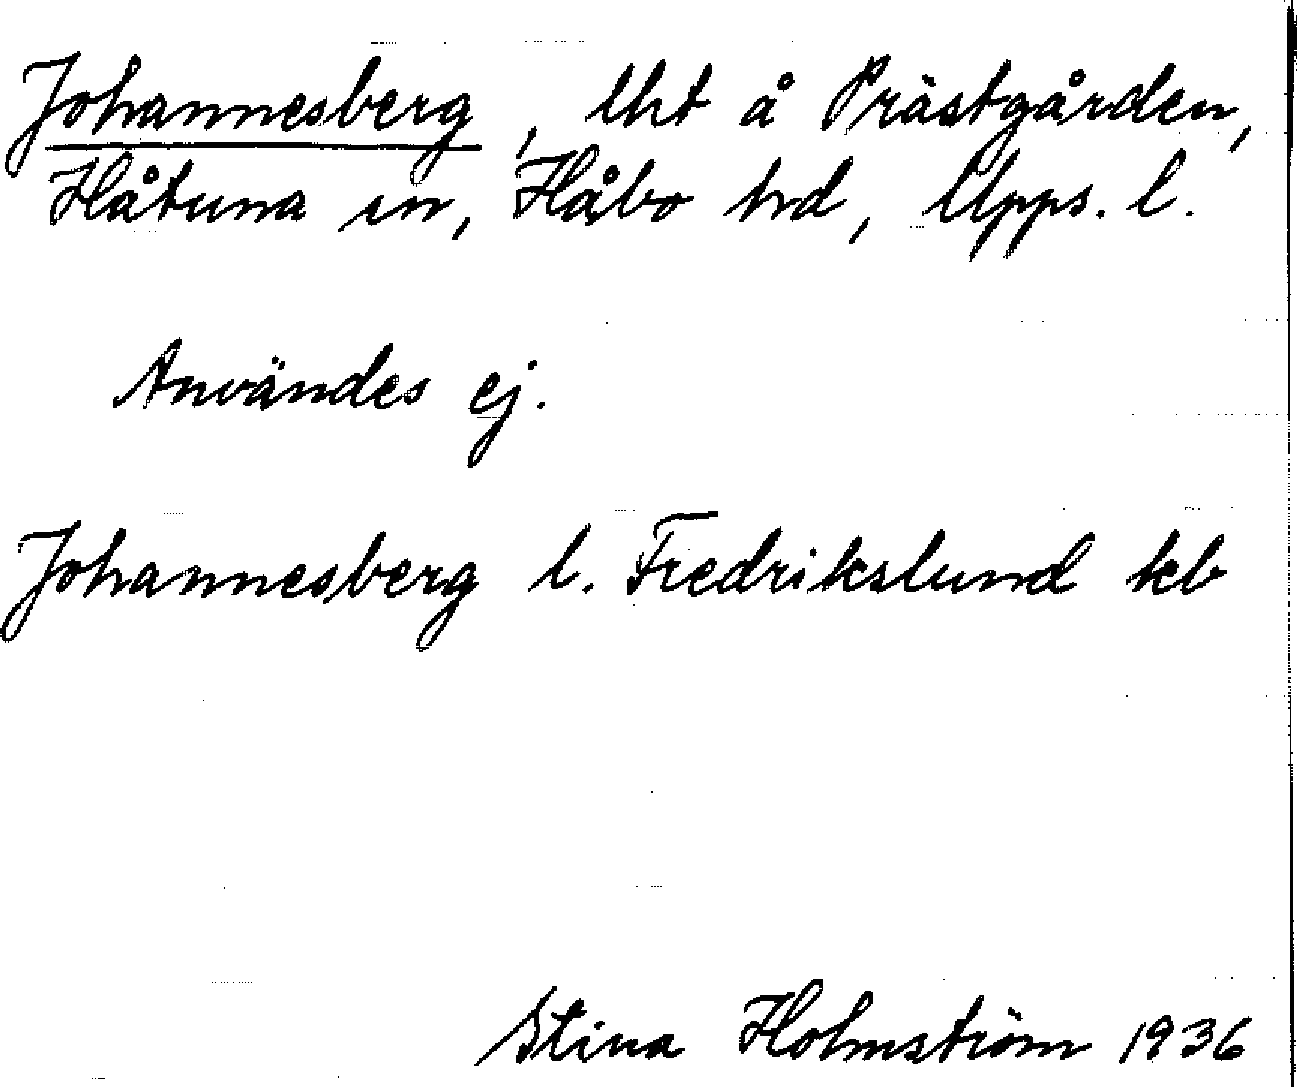 Johannesberg, lht å Prästgården,
Håtuna sn, Håbo hd, Upps. l.
Användes ej.
Johannesberg l. Fredrikslund kb
Stina Holmström 1936